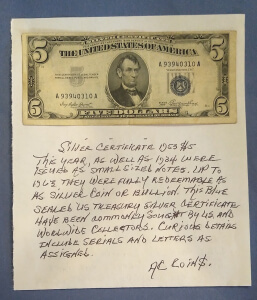 5 SILVER CERTIFICATE 5
THE UNITED STATES OF AMERICA
A 93940310 A
A 93940310 A
5 FIVE DOLLARS 5
SILVER CERTIFICATE 1953 $5
THIS YEAR, AS WELL AS 1934 WERE
ISSUED AS SMALL SIZED NOTES. UP TO
1963, THEY WERE FULLY REDEEMABLE AS
AS SILVER COIN OR BULLION. THIS BLUE
SEALED US TREASURY SILVER CERTIFICATE
HAVE BEEN COMMONLY SOUGHT BY U.S. AND
WORLDWIDE COLLECTORS. CURIOUS DETAILS
INCLUDE SERIALS AND LETTERS AS
ASSIGNED.
AC COIN$.